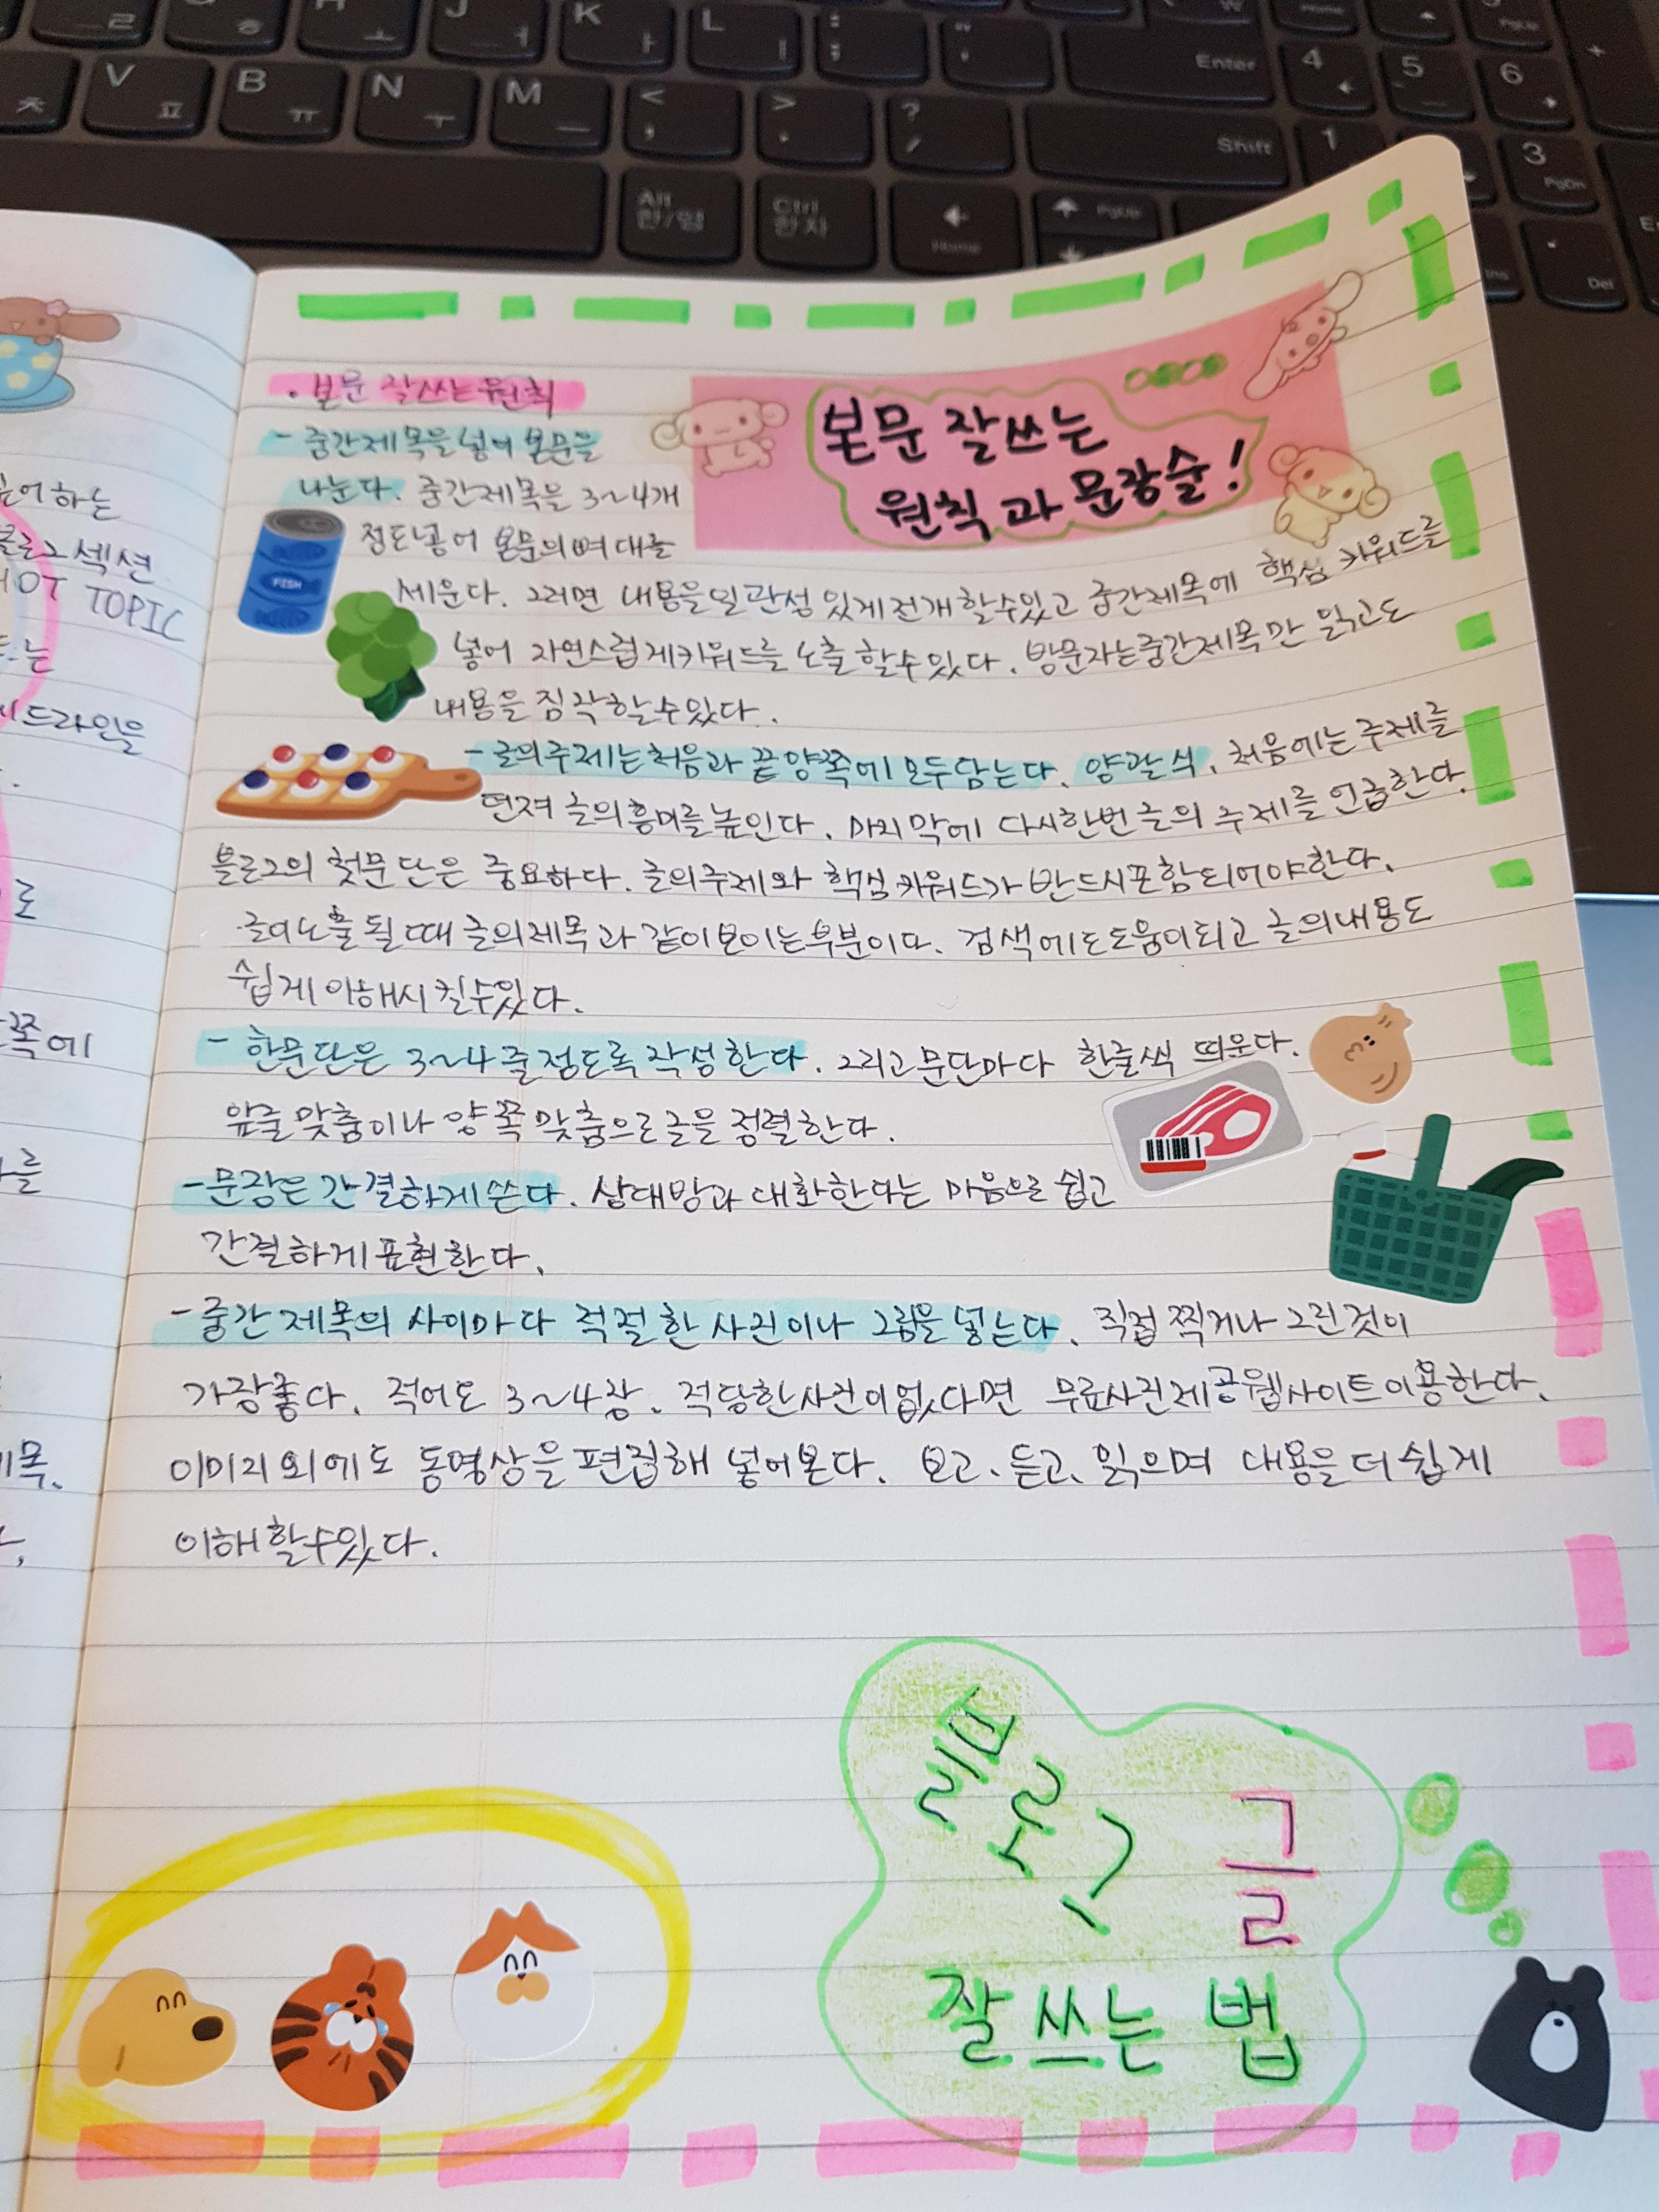 ㄹ ㅎ J ㅓ K ㅏ L ㅣ : ; " ' Enter 4 5 6 +
ㅊ V ㅍ B ㅠ N ㅜ M ㅡ < , > . ? / Shift 1 3 PgDn
Alt 한/영 Ctrl 한자 Home PgUp Ins . Del
하는
섹션
HOT TOPIC
는
드라인을
로
쪽에
를
본문 잘쓰는
원칙과 문장술!
· 본문 잘쓰는 원칙
- 중간제목을 넣어 본문을
나눈다. 중간제목을 3~4개
정도넣어 본문의 뼈대를
FISH
세운다. 그러면 내용을 일관성 있게 전개할수있고 중간제목에 핵심 키워드를
넣어 자연스럽게 키워드를 노출 할수있다. 방문자는 중간제목만 읽고도
내용을 짐작할수있다.
- 글의 주제는 처음과 끝 양쪽에 모두 담는다. 양괄식. 처음에는 주제를
던져 글의 흥미를 높인다. 마지막에 다시한번 글의 주제를 언급한다.
블로그의 첫문단은 중요하다. 글의 주제와 핵심 키워드가 반드시 포함되어야한다.
글이 노출 될때 글의 제목과 같이 보이는 부분이다. 검색에도 도움이되고 글의 내용도
쉽게 이해시킬수있다.
- 한문단은 3~4줄 정도록 작성한다. 그리고 문단마다 한줄씩 띄운다.
앞줄 맞춤이나 양쪽 맞춤으로 글을 정렬한다.
- 문장은 간결하게 쓴다. 상대방과 대화한다는 마음으로 쉽고
간결하게 표현한다.
- 중간 제목의 사이마다 적절한 사진이나 그림을 넣는다. 직접 찍거나 그린것이
가장좋다. 적어도 3~4장. 적당한 사진이 없다면 무료사진제공웹사이트이용한다.
이미지 외에도 동영상을 편집해 넣어본다. 보고, 듣고, 읽으며 내용을 더 쉽게
이해할수있다.
블로그 글
잘 쓰는 법